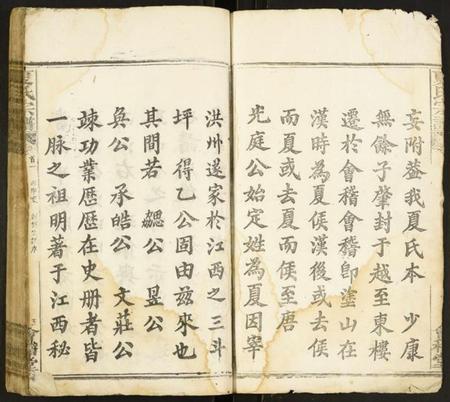 妄附葢我夏氏本 少康
無餘子肇封于越至東樓
遷於會稽會稽卽塗山在
漢時為夏侯漢後或去侯
而夏或去夏而侯至唐
光庭公始定姓為夏因宰
洪州遂家於江西之三斗
坪 得乙公固由兹來也
其間若 勰公 昱公
奐公 承皓公 文莊公
竦功業歴歴在史册者皆
一脉之祖明著于江西秘
夏氏宗譜